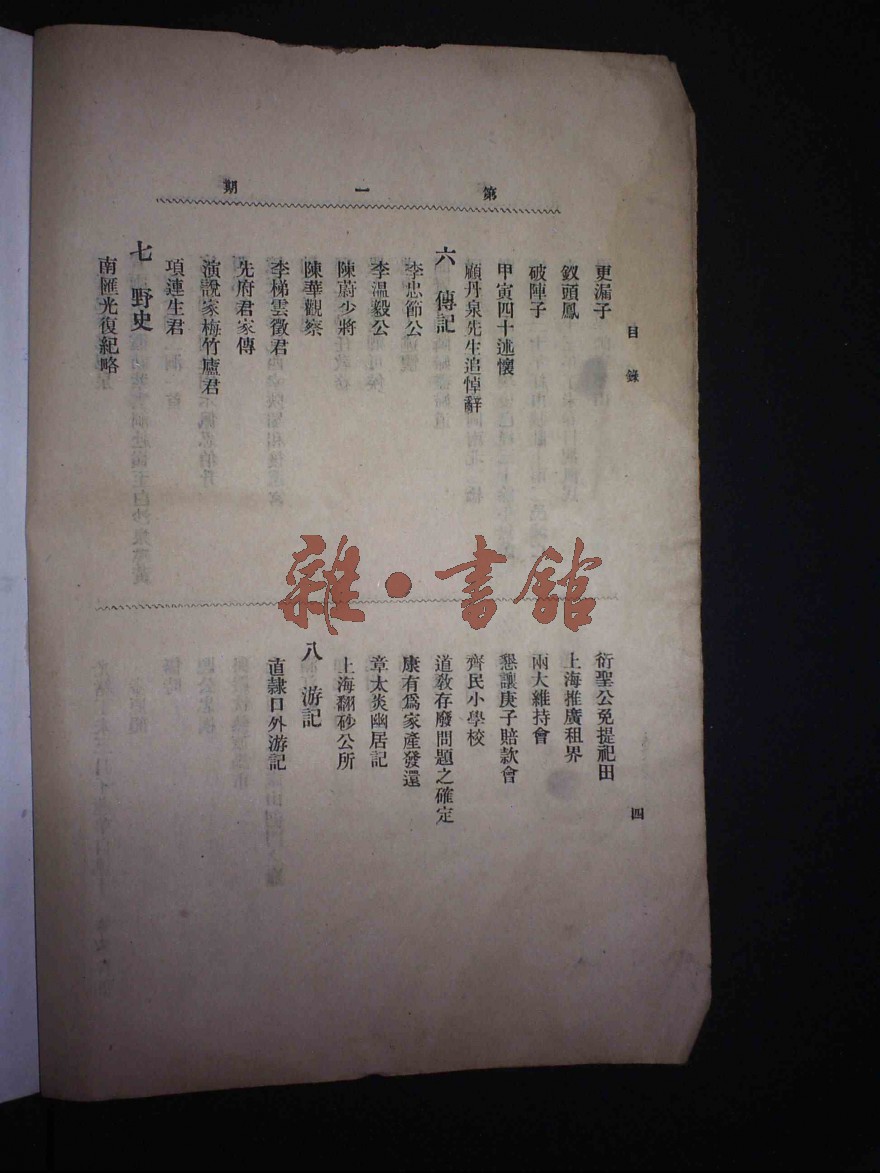 第一期
目錄
四
更漏子
釵頭鳳
破陣子
甲寅四十述懷
顧丹泉先生追悼辭
六 傳記
李忠節公
李溫毅公
陳蔚少將
陳華觀察
李梯雲徵君
先府君家傳
演說家梅竹廬君
項連生君
七 野史
南匯光復紀略
衍聖公免提祀田
上海推廣租界
兩大維持會
懇讓庚子賠款會
齊民小學校
道教存廢問題之確定
康有爲家產發還
章太炎幽居記
上海翻砂公所
八 游記
直隸口外游記
雜·書館